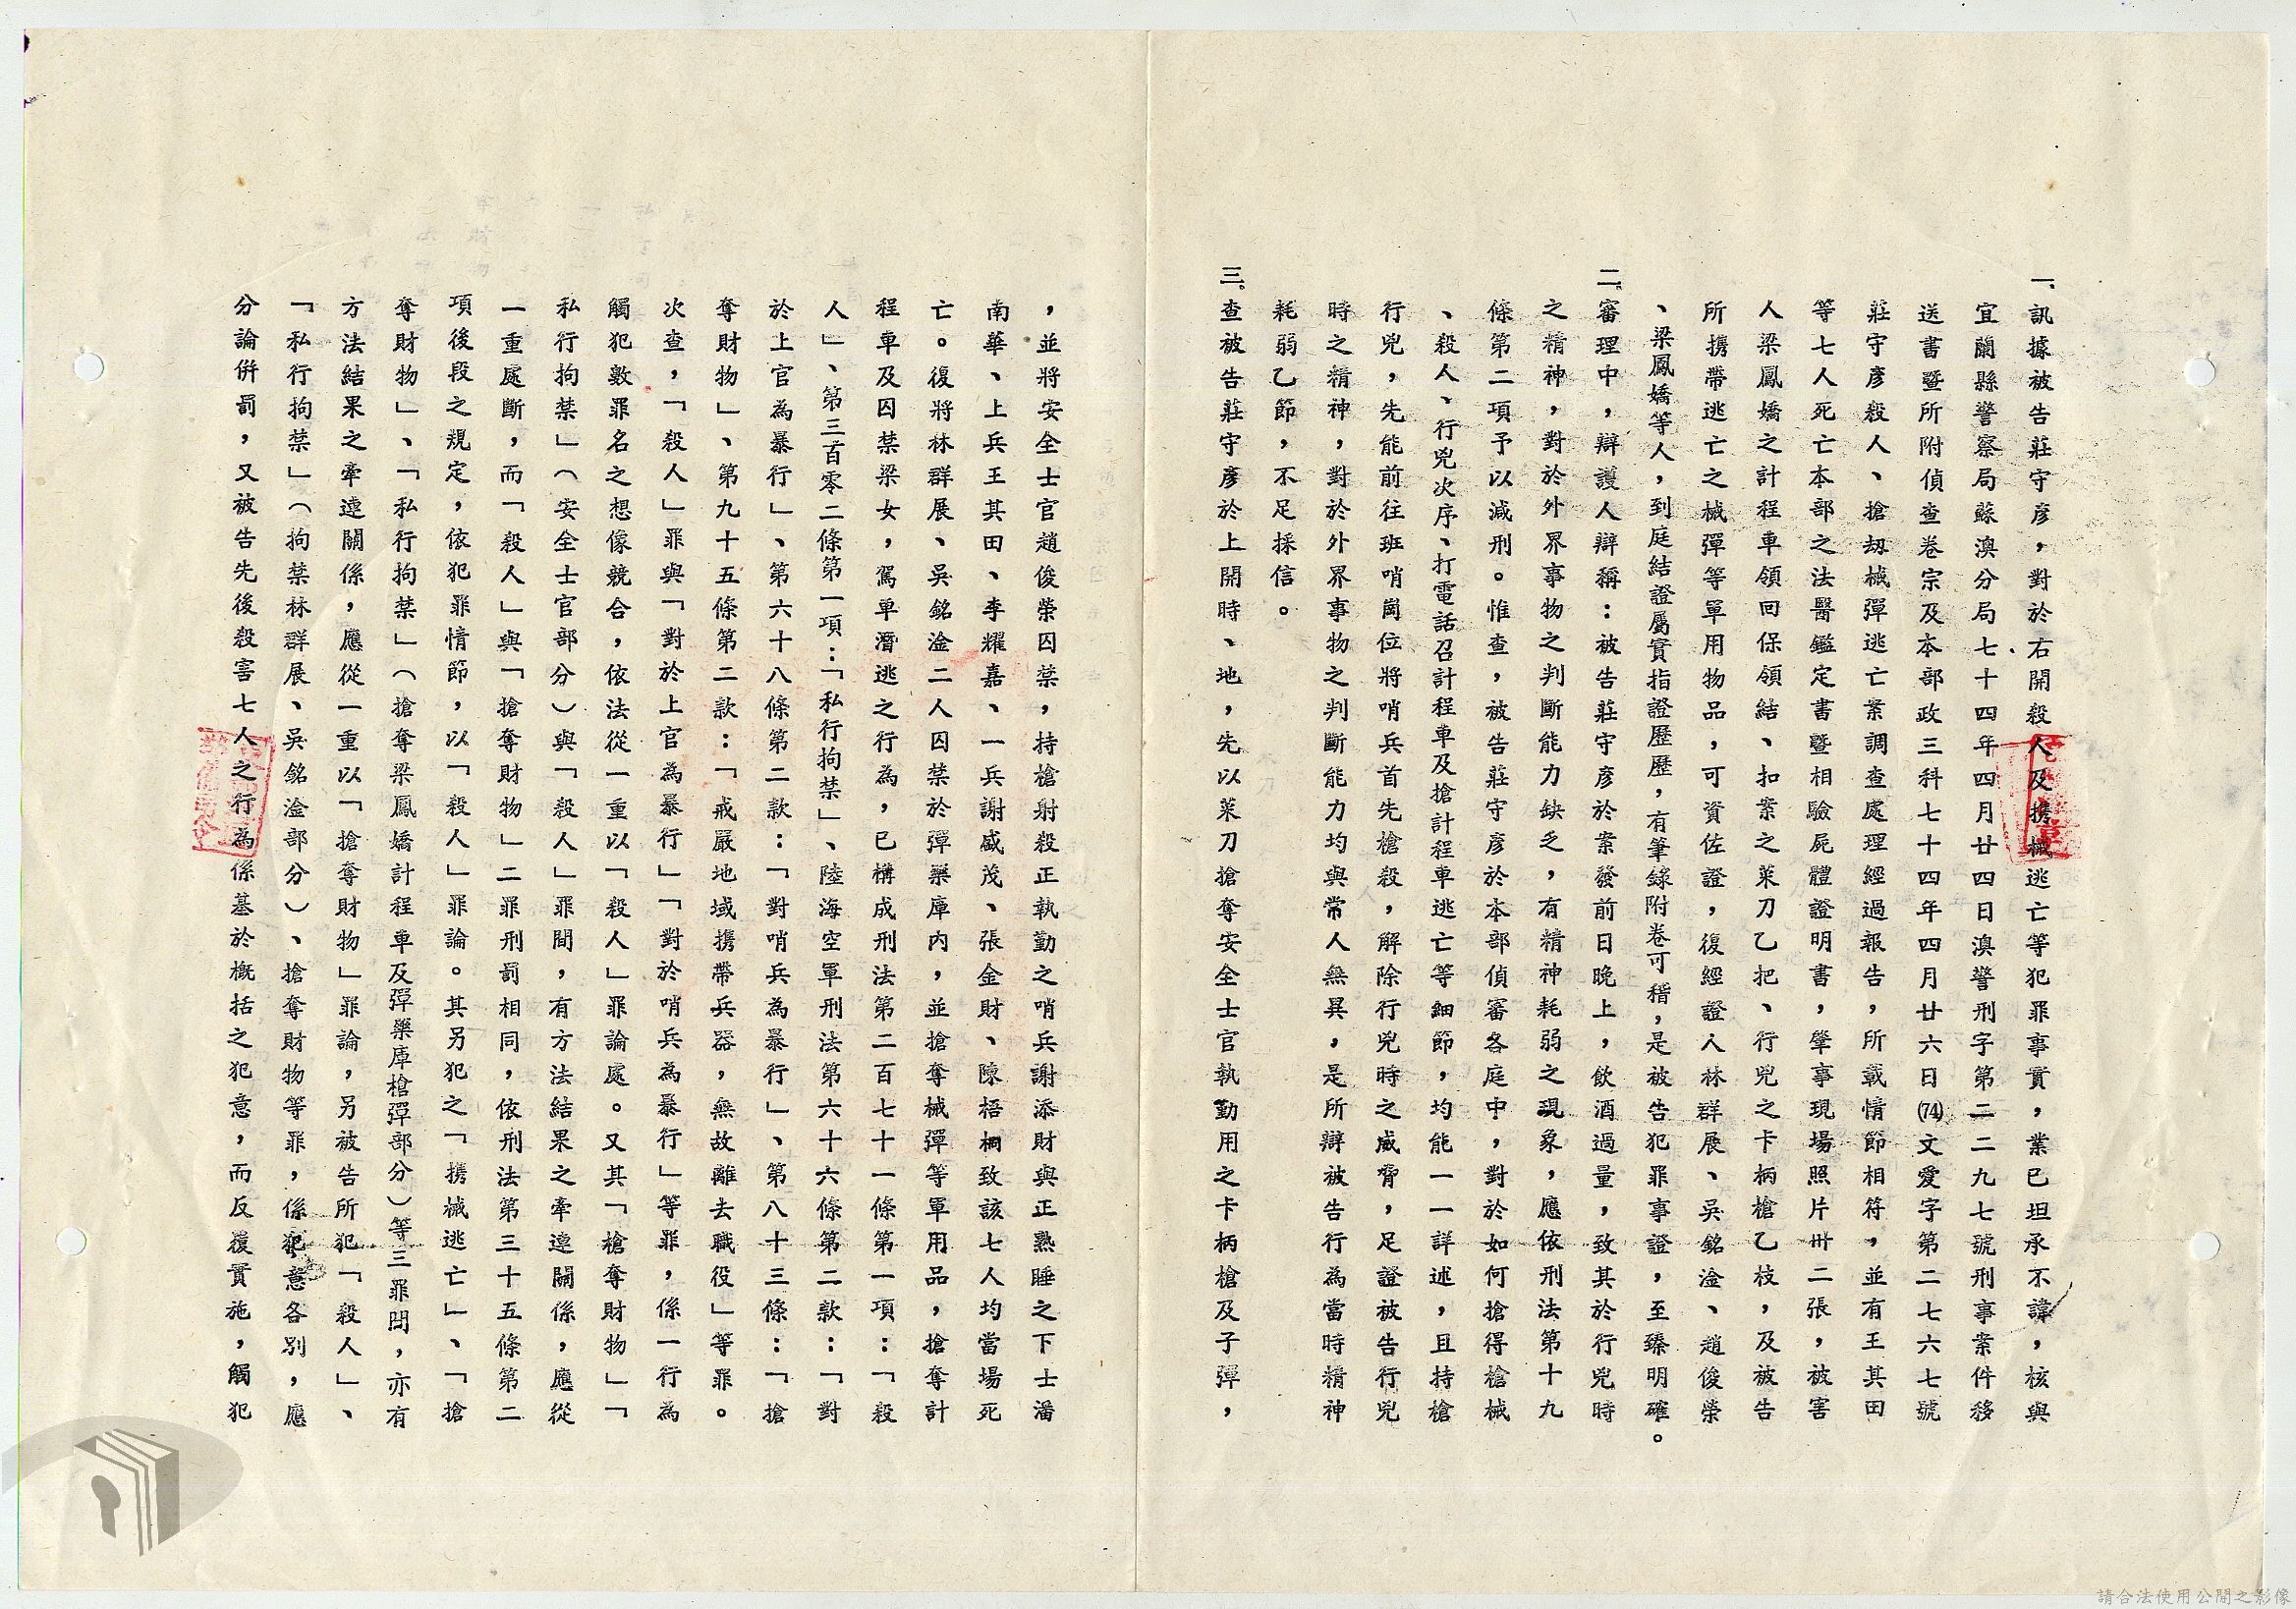 一、訊據被告莊守彥，對於右開殺人及携械逃亡等犯罪事實，業已坦承不諱，核與
宜蘭縣警察局蘇澳分局七十四年四月廿四日澳警刑字第二二九七號刑事案件移
送書暨所附偵查卷宗及本部政三科七十四年四月廿六日(74)文愛字第二七六七號
莊守彥殺人、搶刼械彈逃亡案調查處理經過報告，所載情節相符，並有王其田
等七人死亡本部之法醫鑑定書暨相驗屍體證明書，肇事現場照片卅二張，被害
人梁鳳嬌之計程車領回保領結、扣案之菜刀乙把、行兇之卡柄槍乙枝，及被告
所携帶逃亡之械彈等軍用物品，可資佐證，復經證人林群展、吳銘淦、趙俊榮
、梁鳳嬌等人，到庭結證屬實指證歷歷，有筆錄附卷可稽，是被告犯罪事證，至臻明確。
二、審理中，辯護人辯稱：被告莊守彥於案發前日晚上，飲酒過量，致其於行兇時
之精神，對於外界事物之判斷能力缺乏，有精神耗弱之現象，應依刑法第十九
條第二項予以減刑。惟查，被告莊守彥於本部偵審各庭中，對於如何搶得槍械
、殺人、行兇次序、打電話召計程車及搶計程車逃亡等細節，均能一一詳述，且持槍
行兇，先能前往班哨崗位將哨兵首先槍殺，解除行兇時之威脅，足證被告行兇
時之精神，對於外界事物之判斷能力均與常人無異，是所辯被告行為當時精神
耗弱乙節，不足採信。
三、查被告莊守彥於上開時、地，先以菜刀搶奪安全士官執勤用之卡柄槍及子彈，
，並將安全士官趙俊榮囚禁，持槍射殺正執勤之哨兵謝添財與正熟睡之下士潘
南華、上兵王其田、李耀嘉、一兵謝威茂、張金財、陳梧桐致該七人均當場死
亡。復將林群展、吳銘淦二人囚禁於彈藥庫內，並搶奪械彈等軍用品，搶奪計
程車及囚禁梁女，駕車潛逃之行為，已構成刑法第二百七十一條第一項：「殺
人」、第三百零二條第一項：「私行拘禁」、陸海空軍刑法第六十六條第二款：「對
於上官為暴行」、第六十八條第二款：「對哨兵為暴行」、第八十三條：「搶
奪財物」、第九十五條第二款：「戒嚴地域携帶兵器，無故離去職役」等罪。
次查，「殺人」罪與「對於上官為暴行」「對於哨兵為暴行」等罪，係一行為
觸犯數罪名之想像競合，依法從一重以「殺人」罪論處。又其「搶奪財物」「
私行拘禁」（安全士官部分）與「殺人」罪間，有方法結果之牽連關係，應從
一重處斷，而「殺人」與「搶奪財物」二罪刑罰相同，依刑法第三十五條第二
項後段之規定，依犯罪情節，以「殺人」罪論。其另犯之「携械逃亡」、「搶
奪財物」、「私行拘禁」（搶奪梁鳳嬌計程車及彈藥庫槍彈部分）等三罪間，亦有
方法結果之牽連關係，應從一重以「搶奪財物」罪論，另被告所犯「殺人」、
「私行拘禁」（拘禁林群展、吳銘淦部分）、搶奪財物等罪，係犯意各別，應
分論併罰，又被告先後殺害七人之行為係基於概括之犯意，而反覆實施，觸犯
請合法使用公開之影像